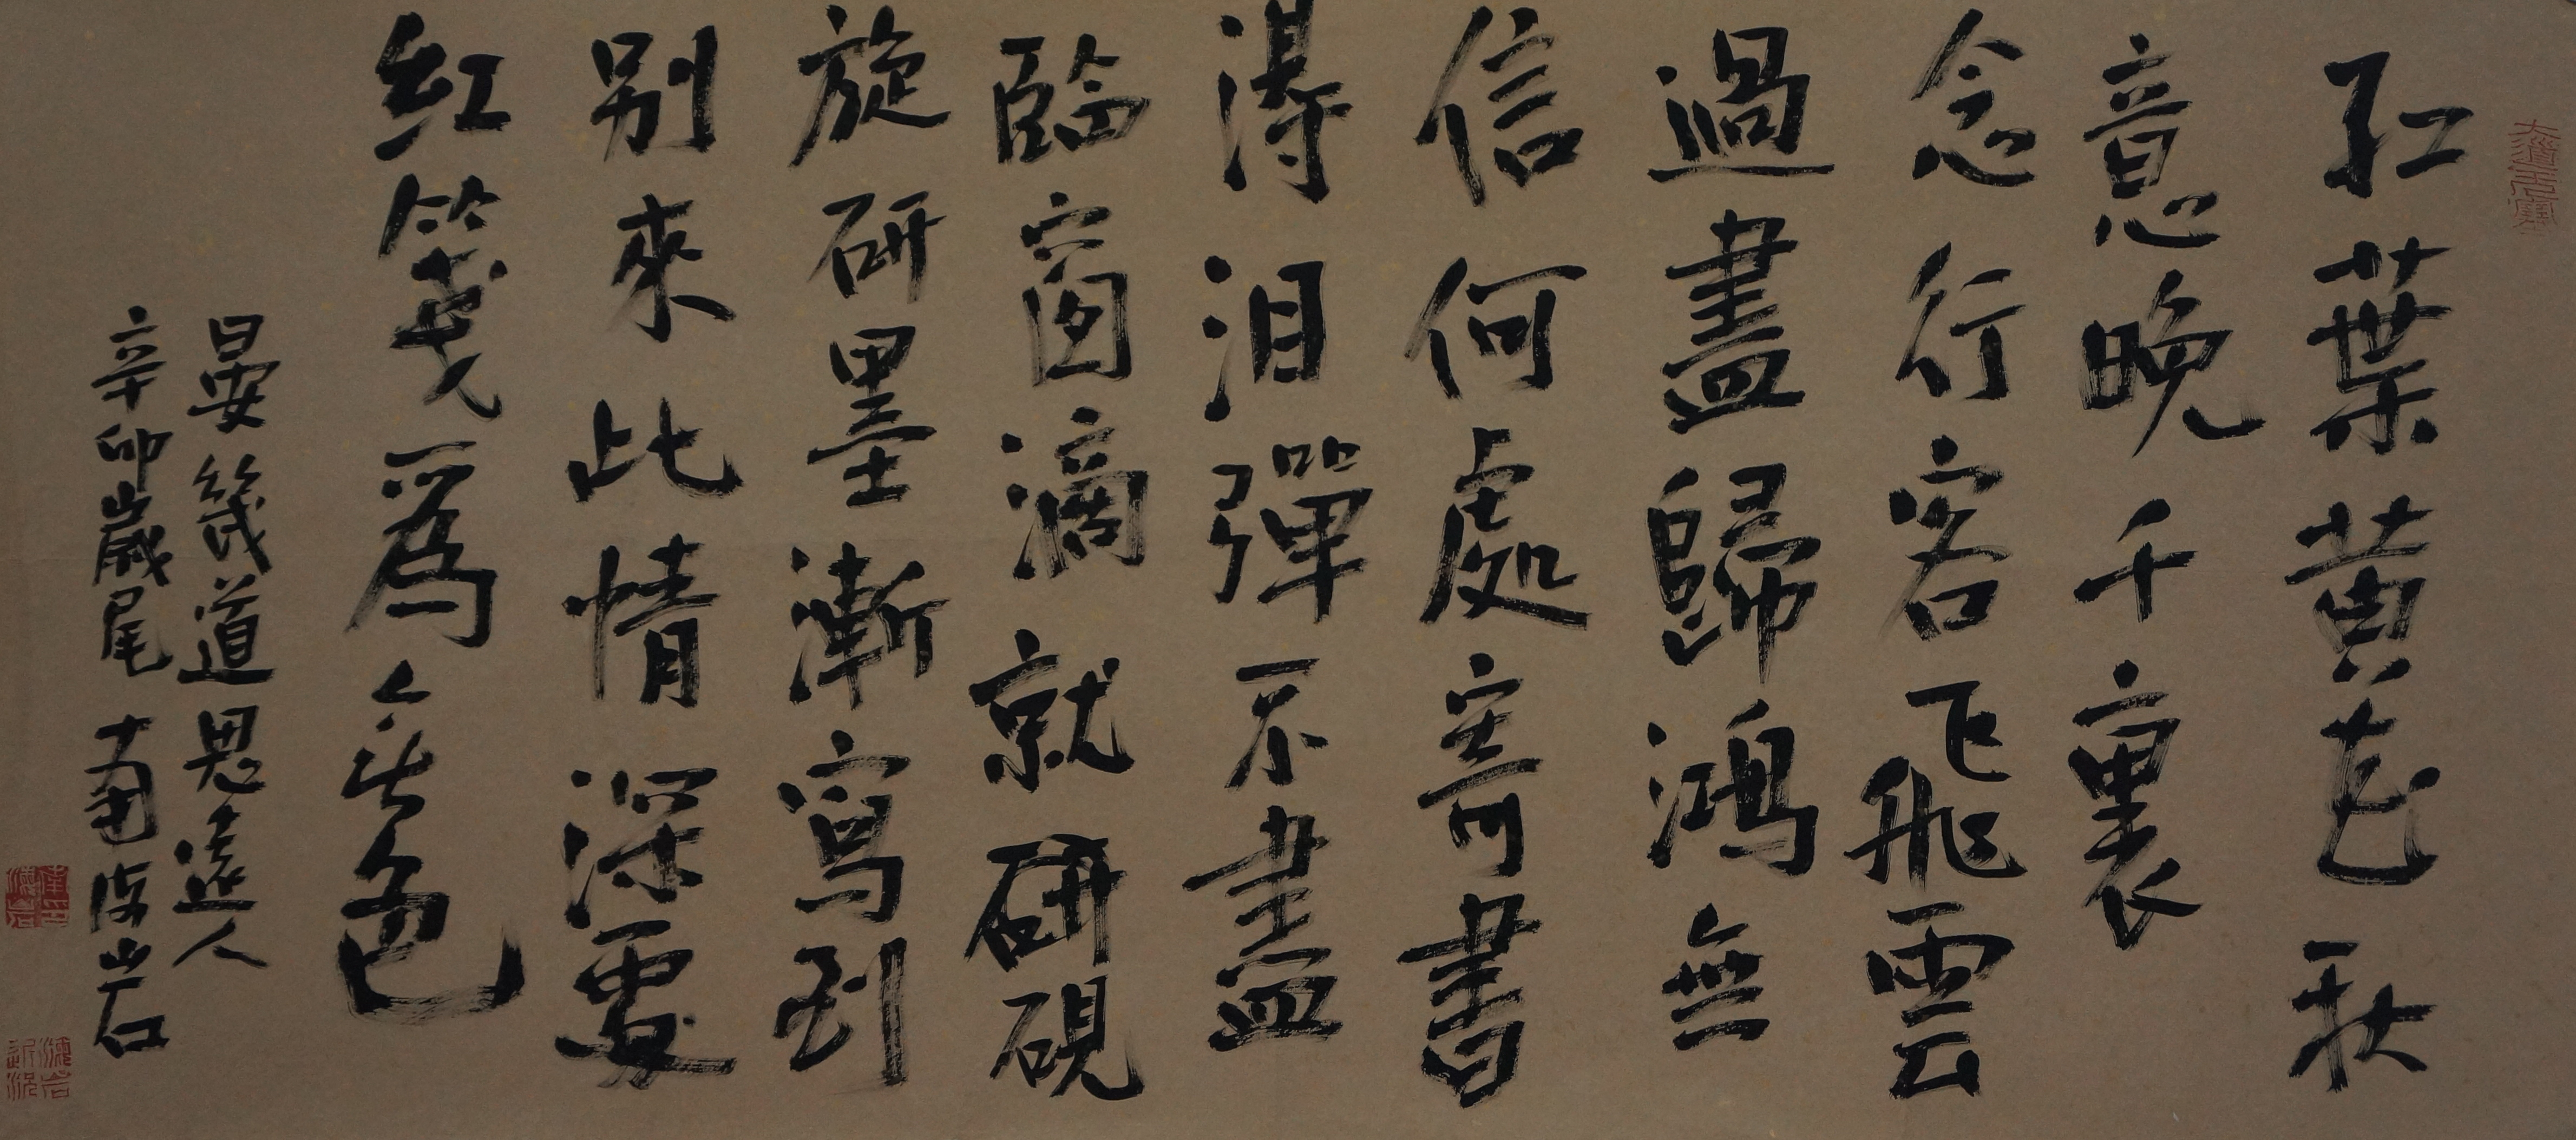 紅葉黄花秋
意晚千裏
念行客飛雲
過盡歸鴻無
信何處寄書
得泪彈不盡
臨窗滴就研硯
旋研墨漸寫到
别來此情深處
紅箋爲無色
晏幾道思遠人
辛卯歲尾 南海岩